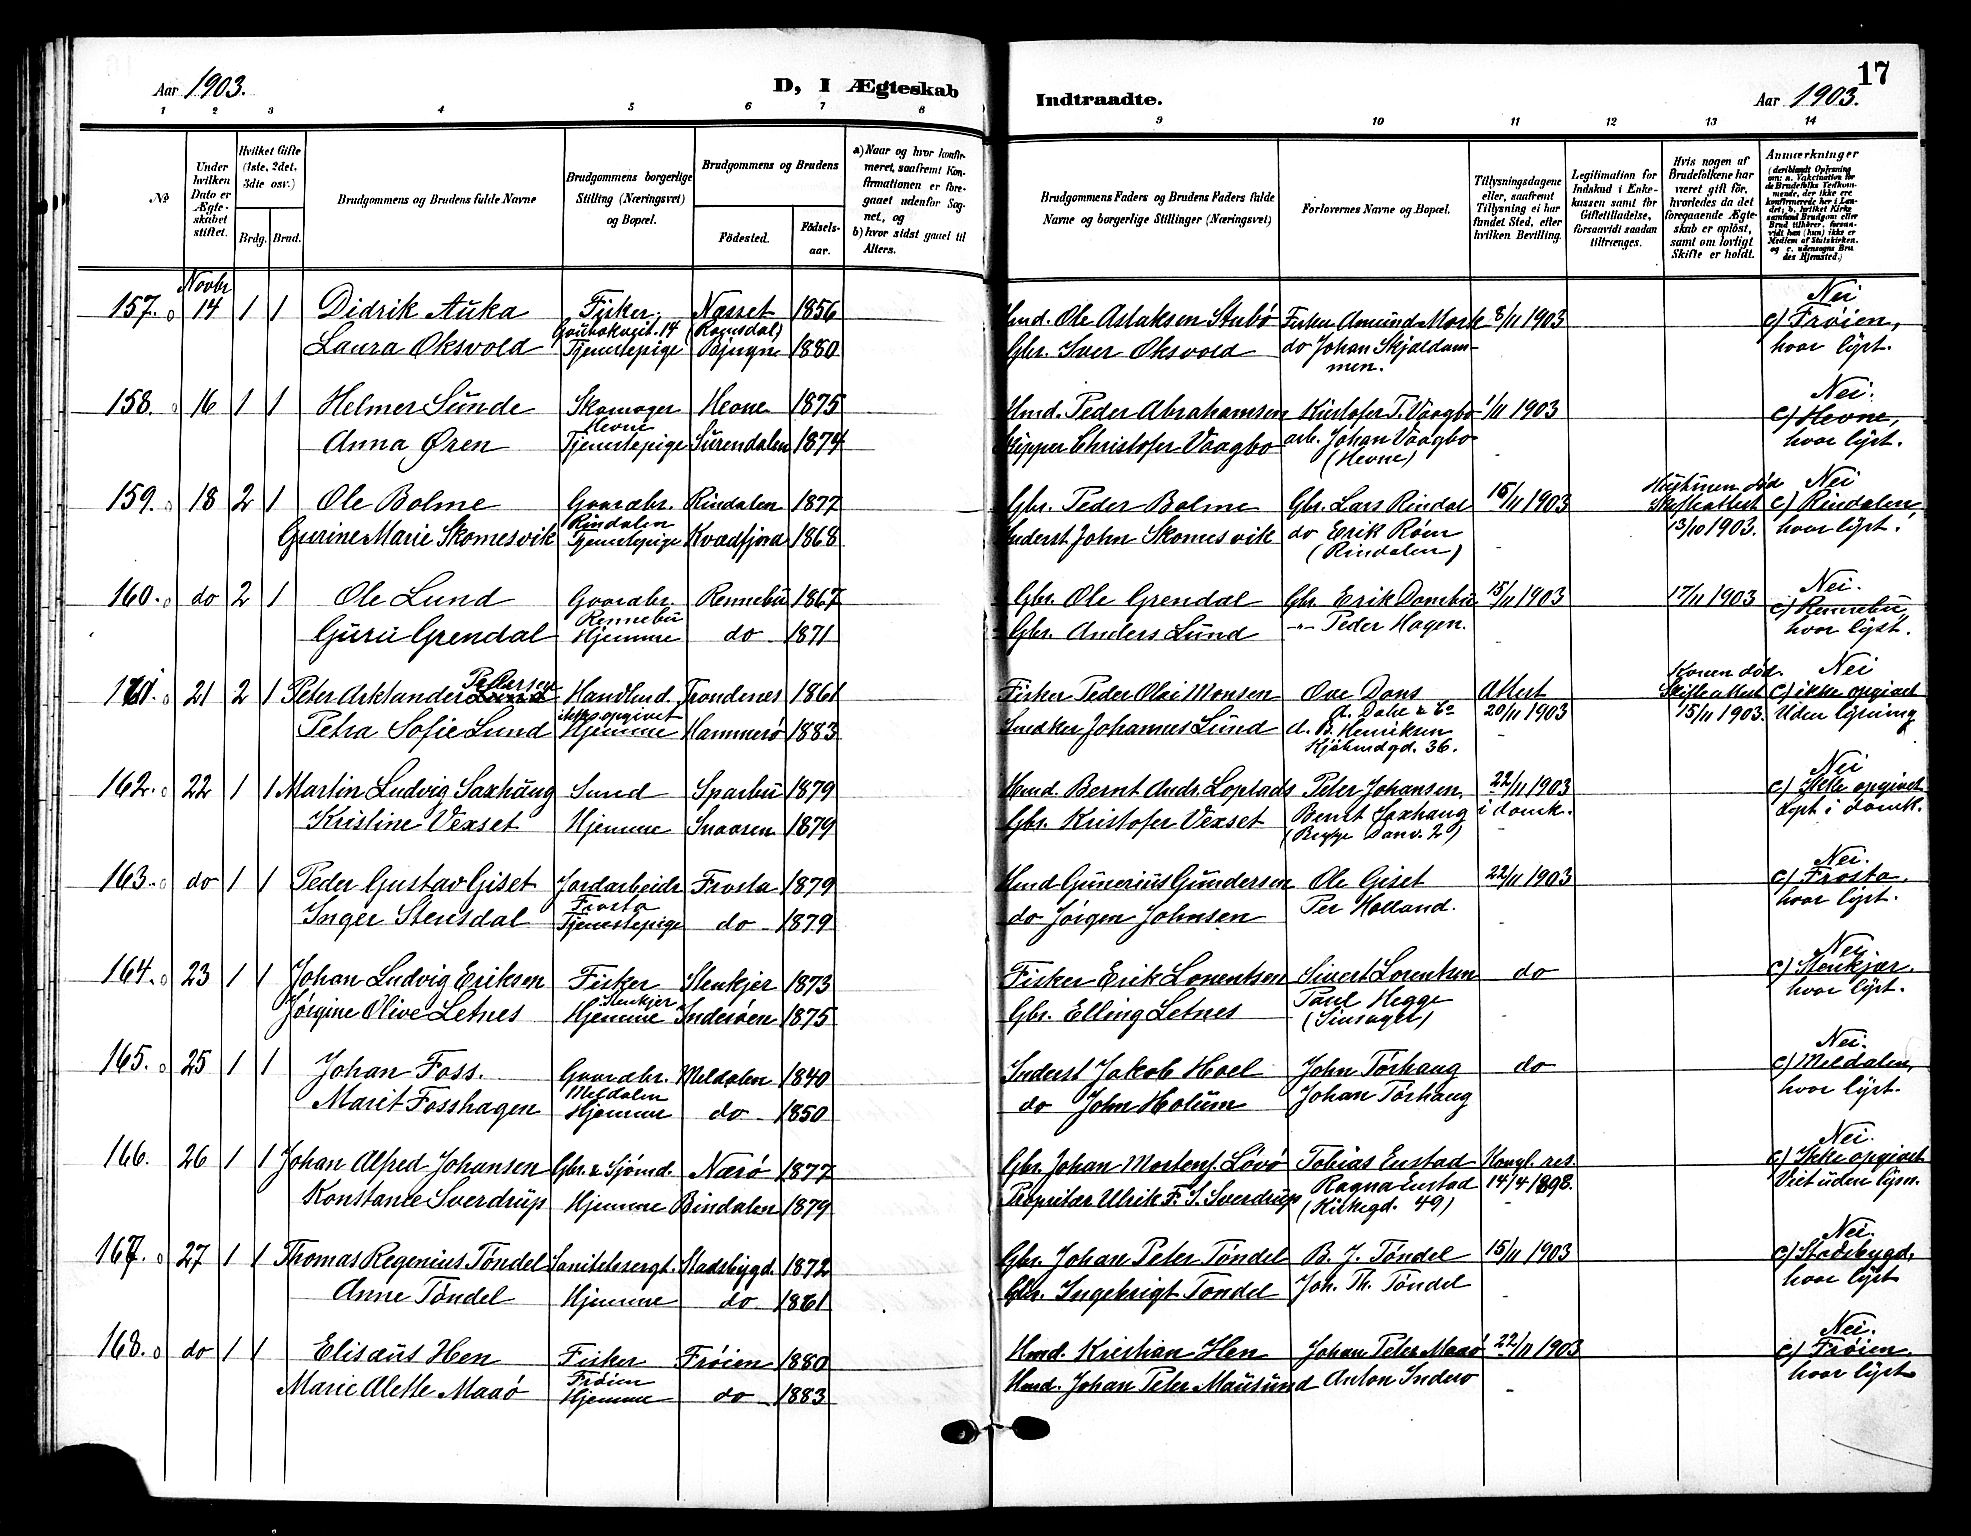 Aar 1903.
D, I Ægteskab
Indtraadte.
Aar 1903.
17
1 2 3 4 5 6 7 8 9 10 11 12 13 14
№
Under hvilken Dato er Ægteskabet stiftet.
Hvilket Gifte (1ste, 2det, 3die osv.)
Brdg. Brud.
Brudgommens og Brudens fulde Navne
Brudgommens borgerlige Stilling (Næringsvei) og Bopæl.
Brudgommens og Brudens
Fødested.
Fødselsaar.
a) Naar og hvor konfirmeret, saafremt Konfirmationen er foregaaet udenfor Sognet, og
b) hvor sidst gaaet til Alters.
Brudgommens Faders og Brudens Faders fulde Navne og borgerlige Stillinger (Næringsvei)
Forlovernes Navne og Bopæl.
Tillysningsdagene eller, saafremt Tillysning ei har fundet Sted, efter hvilken Bevilling.
Legitimation for Indskud i Enkekassen samt for Giftetilladelse, forsaavidt saadan tiltrænges.
Hvis nogen af Brudefolkene har været gift før, hvorledes da det foregaaende Ægteskab er opløst, samt om lovligt Skifte er holdt.
Anmærkninger
(deriblandt Oplysning om: a. Vakcination for de Brudefolks Vedkommende, der ikke ere konfirmerede her i Landet; b. hvilket Kirkesamfund Brudgom eller Brud tilhører, forsaavidt han (hun) ikke er Medlem af Statskirken, og c. udensogns Brudes Hjemsted.)
Novbr
157. 14 1 1 Didrik Auka Fisker, Næsset 1856 Hmd. Ole Aslaksen Stubø Fisker Amund Mork 8/11 1903 Nei c) Frøien,
Gaubakveit. 14 (Romsdal)
Laura Oksvold Tjenestepige Bjugne 1880 Gbr. Iver Oksvold do Johan Skjældammen. hvor lyst.
158. 16 1 1 Helmer Sunde Skomager Hevne 1875 Hmd. Peder Abrahamsen Kristofer T. Vaagbø 1/11 1903 Nei. c) Hevne,
Hevne
Anna Øren Tjenestepige Surendalen 1874 Skipper Christofer Vaagbo arb. Johan Vaagbo (Hevne) hvor lyst.
159. 18 2 1 Ole Bolme Gaardbr. Rindalen 1877 Gbr. Peder Bolme Gbr. Lars Rindal 15/11 1903 Hustruen død Skifteattest Nei c) Rindalen,
Rindalen
Gurine Marie Skomesvik Tjenestepige Kvædfjord 1868 Inderst John Skomesvik do Erik Røen (Rindalen) 13/10 1903. hvor lyst.
160. do 2 1 Ole Lund Gaardbr. Rennebu 1867 Gbr. Ole Grendal Gbr. Erik Dambu 15/11 1903 17/11 1903 Nei. c) Rennebu,
Rennebu
Guru Grendal Hjemme do 1871 Gbr. Anders Lund -"- Peder Hagen. hvor lyst.
161. 21 2 1 Peter Arktander Pedersen Handlend. Trondenes 1861 Fisker Peder Olai Monsen Ove Dons Attest Konen død. Skifteattest Nei c) ikke opgivet
ikke opgivet d. Dahl & Co
Petra Sofie Lund Hjemme Hammerø 1883 Snedker Johannes Lund d. B. Henriksen Kjøbmdgd. 36. 20/11 1903 15/11 1903. Uden lysning
162. 22 1 1 Martin Ludvig Saxhaug Smed Sparbu 1879 Hmd. Bernt Andr. Loplads Peter Johansen, 22/11 1903 Nei c) Ikke opgivet
Kristine Vexset Hjemme Snaasen 1879 Gbr. Kristofer Vexset Bernt Saxhaug i domk. Lyst i domk.
163. do 1 1 Peder Gustav Giset Jordarbeidr Frosta 1879 Hmd Gunerius Gundersen Ole Giset 22/11 1903 Nei. c) Frosta,
Frosta
Inger Stensdal Tjenestepige do 1879 do Jørgen Johnsen Per Holland. hvor lyst.
164. 23 1 1 Johan Ludvig Eriksen Fisker Stenkjer 1873 Fisker Erik Lorentsen Sivert Lorentsen do Nei. c) Stenkjær.
Stenkjer
Jørgine Olive Letnes Hjemme Inderøen 1875 Gbr. Elling Letnes Paul Hegge hvor lyst.
165. 25 1 1 Johan Foss. Gaardbr. Meldalen 1840 Inderst Jakob Hoel John Tørhaug do Nei. c) Meldalen,
Meldalen
Marit Fosshagen Hjemme do 1850 do John Holum Johan Tørhaug hvor lyst.
166. 26 1 1 Johan Alfred Johansen Gbr. & Sjømd. Nærø 1877 Gbr. Johan Mortens. Løvø Tobias Enstad Kongl. res. Nei. c) Ikke opgivet
Konstanse Sverdrup Hjemme Bindalen 1879 Propritær Ulrik F. S. Sverdrup Ragna Enstad (Kirkegd. 49) 14/4 1898. Viet uden lysn.
167. 27 1 1 Thomas Regenius Tøndel Sanitetssergt. Stadsbygd. 1872 Gbr. Johan Peter Tøndel B. J. Tøndel 15/11 1903 Nei. c) Stadsbygd,
Anne Tøndel Hjemme do 1861 Gbr. Ingebrigt Tøndel Joh. Th. Tøndel hvor lyst
168. do 1 1 Elisæus Hen Fisker Frøien 1880 Hmd. Kristian Hen Johan Peter Maaø 22/11 1903 Nei. c) Frøien,
Frøien
Marie Alette Maaø Hjemme do 1883 Hmd. Johan Peter Mausund Anton Inderø hvor lyst